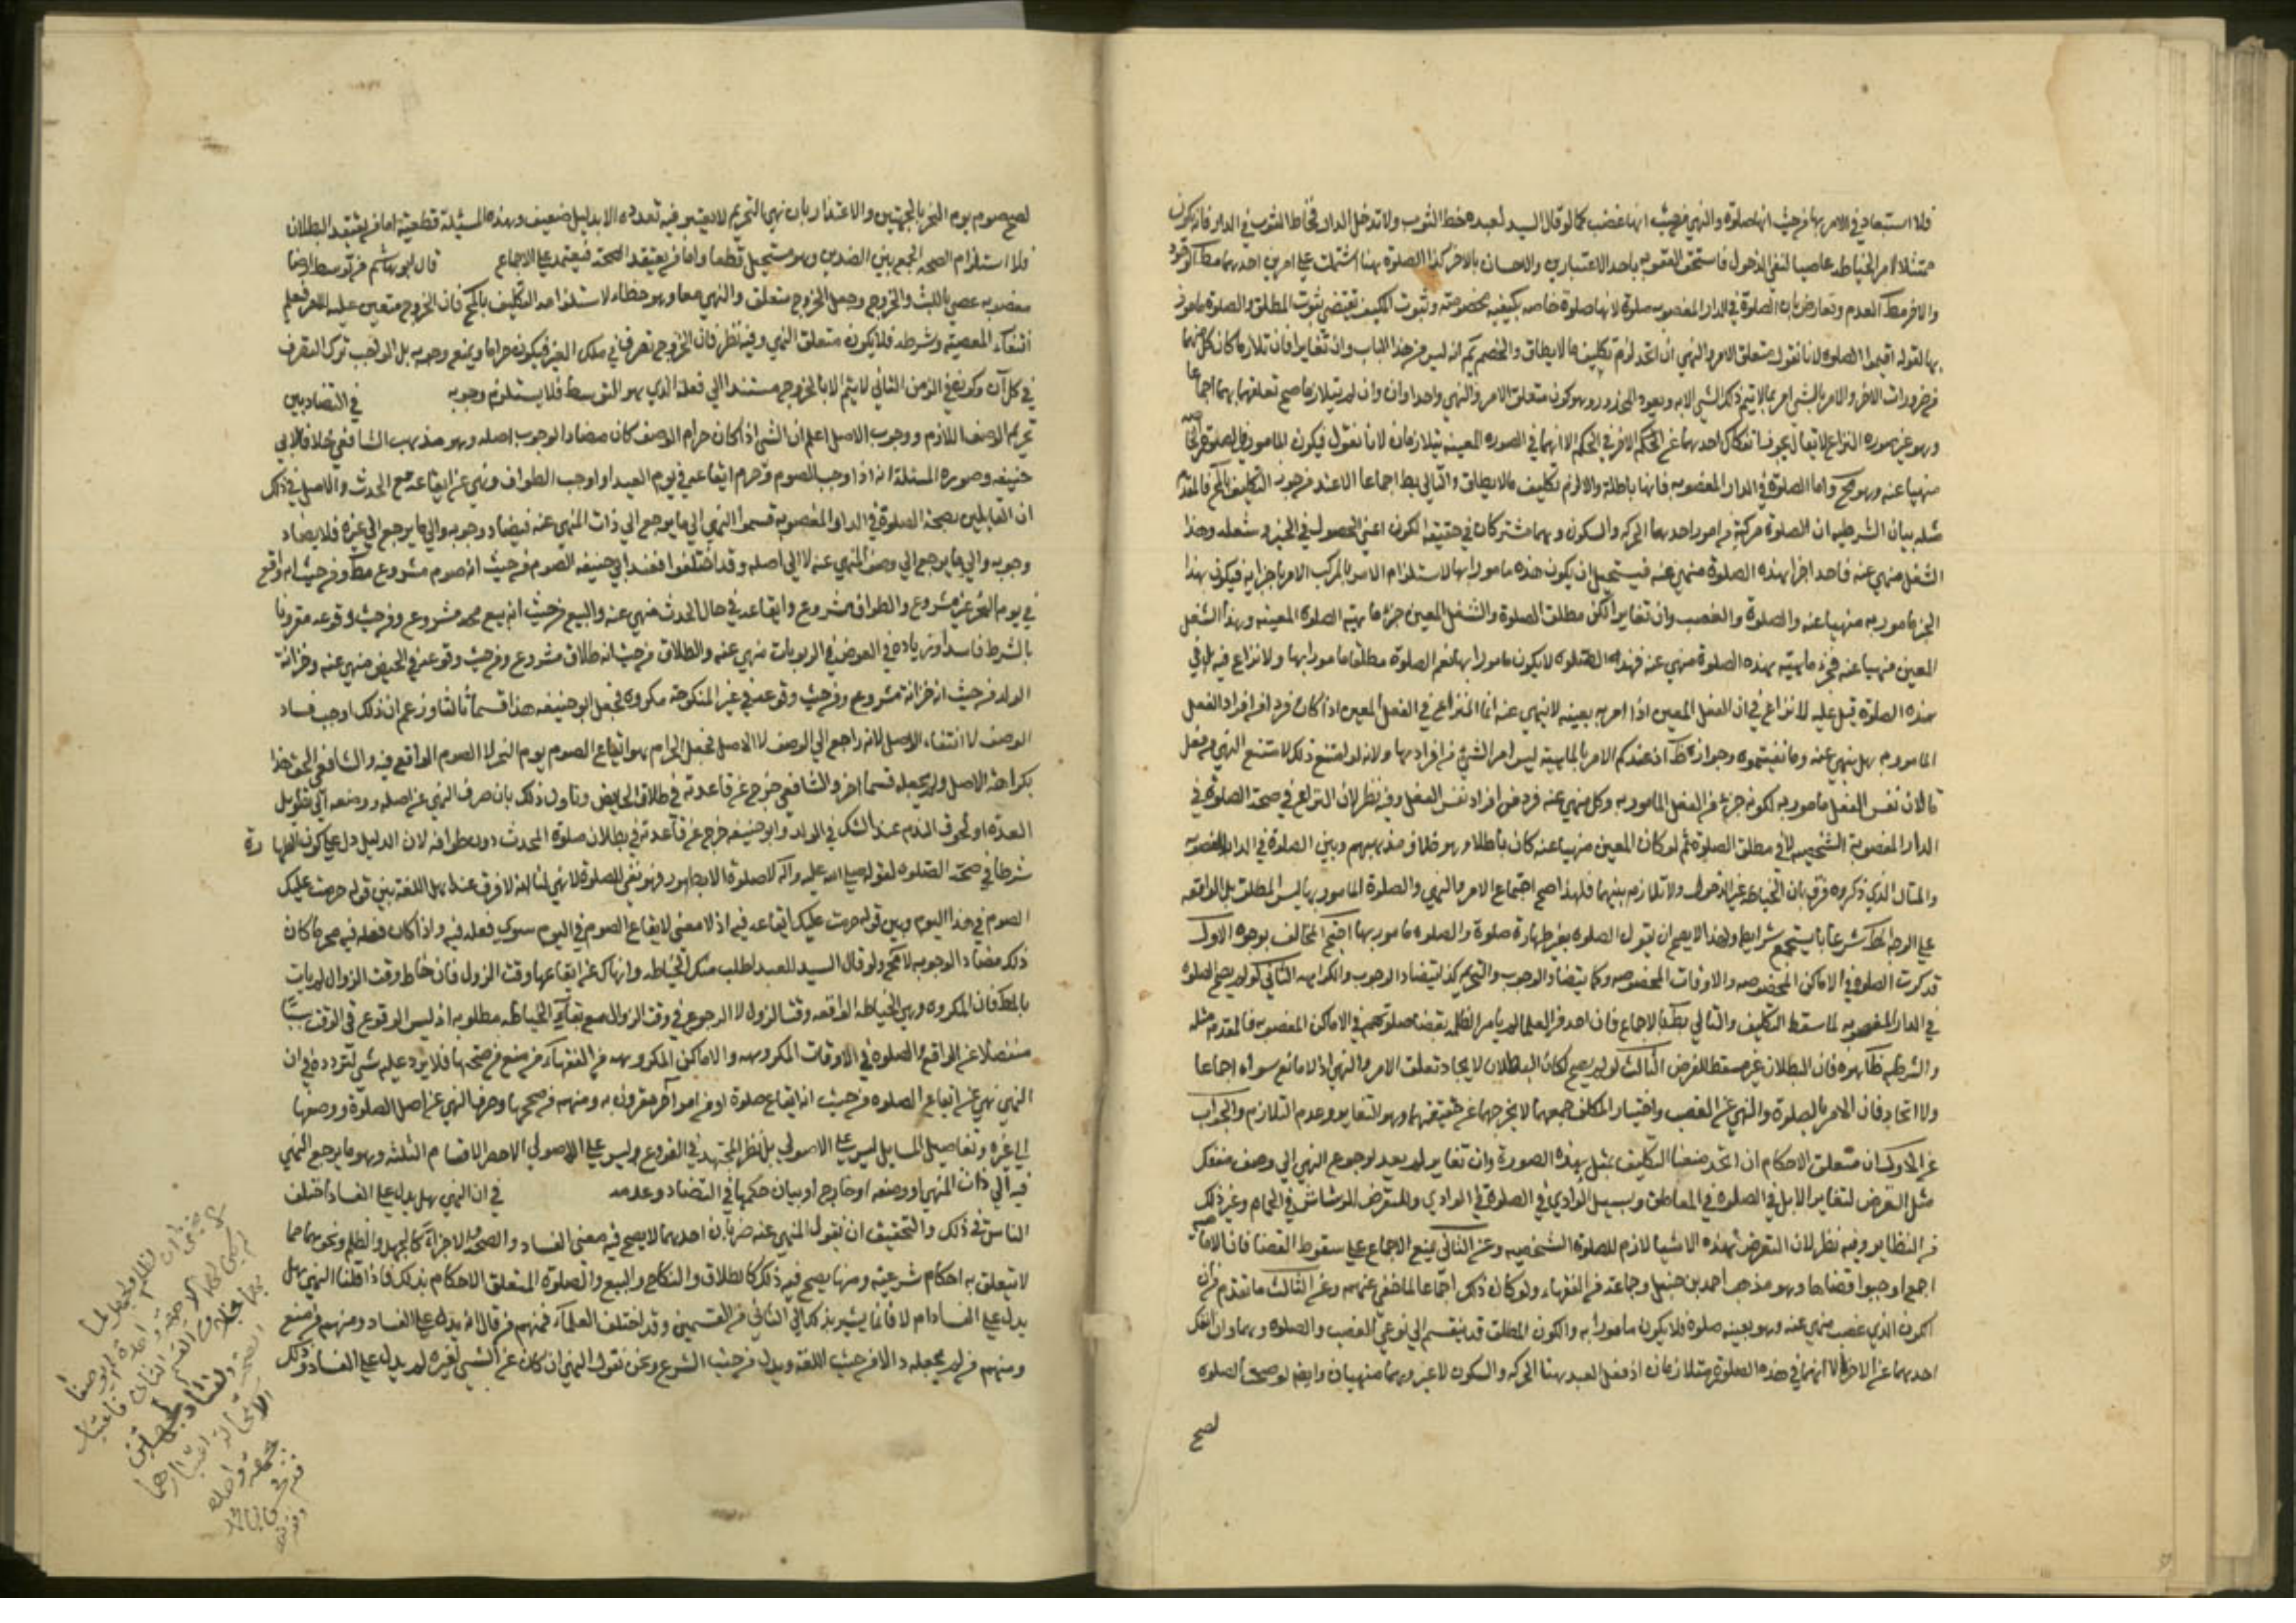 فلا استبعاد في الامر بها من حيث انها صلوة والنهي من حيث انها غصب كما لو قال السيد لعبده خط الثوب ولا تدخل الدار فخاط الثوب في الدار فانه يكون
ممتثلا لامر الخياطه عاصيا لنفي الدخول فاستحق العقوبه باحد الاعتبارين والاحسان بالاخر كذا الصلوة هنا اشتملت على امرين احدهما مط الوجود
والاخر مط العدم وتعارض بان الصلوة في الدار المغصوبه صلوة لانها صلوة خاصه بكيفيه مخصوصة وثبوت المكيف يقتضي ثبوت المطلق والصلوة مامور
بها لقوله اقيموا الصلوه لانا نقول متعلق الامر والنهي ان اتحد لزم تكليف ما لا يطاق والخصم يم انه ليس من هذا الباب وان تغايرا فان تلازما كان كل منهما
من ضرورات الاخر والامر بالشي امر بما لا يتم ذلك الشي الا به ويعود المحذور وهو كون متعلق الامر والنهي واحدا وان لم يتلازما صح تعلقهما بهما اجماعا
وهو غير صوره النزاع لا يقال يجوز انفكاك احدهما عن الحكم الاخر في الحكم الا انهما في الصوره المعينه يتلازمان لانا نقول فيكون المامور
منهيا عنه وهو مح واما الصلوة في الدار المغصوبه فانها باطلة والا لزم تكليف ما لا يطاق والتالي بط اجماعا الا عند من جوز التكليف بالمح فالمقدم
مثله بيان الشرطيه ان الصلوة مركبة من امور احدها الحركه والسكون وهما مشتركان في حقيقة الكون اعني الحصول في الحيز وشغله وهذا
الشغل منهي عنه فاحد اجزا هذه الصلوة منهي عنه فيستحيل ان يكون هذه مامورا بها لاستلزام الامر بالمركب الامر باجزايه فيكون هذا
الجز مامور به منهيا عنه والصلوة والغصب وان تغايرا لكن مطلق الصلوة والشغل المعين جزء ماهية الصلوة المعينه وهذا الشغل
المعين منهيا عنه فجزء ماهية هذه الصلوة منهي عنه فهذه الصلوه لا يكون مامورا بها نعم الصلوة مطلقا مامورا بها ولا نزاع فيه بل في
هذه الصلوة قيل عليه لا نزاع في ان الفعل المعين اذا امر به بعينه لا ينهي عنه انما النزاع في الفعل المعين اذا كان فرد من افراد الفعل
المامور به هل ينهي عنه وما نفيتموه وجوازه ظ اذ عندكم الامر بالماهية ليس امر الشي من افرادها ولانه لو امتنع ذلك لامتنع النهي عن فعل
ما لان نفس الفعل مامور به لكونه جزء من الفعل المامور به وكل منهي عنه فرد من افراد نفس الفعل وفيه نظر لان النزاع في صحة الصلوة في
الدار المغصوبة الشخصيه لا في مطلق الصلوة ثم لو كان المعين منهيا عنه كان باطلا وهو خلاف مذهبهم وبين الصلوة في الدار المغصوبه
والمثال الذي ذكروه فرق بان الخياطه غير الدخول ولا تلازم بينهما فلهذا صح اجتماع الامر والنهي والصلوة المامور بها ليس المطلق بل الواقعه
على الوجه المط شرعا باستجماع شرايط ولهذا لا يصح ان يقول الصلوه بغير طهارة صلوة والصلوه مامور بها احتج المخالف بوجوه الاول
قد كرهت الصلوه في الاماكن المخصوصه والاوقات المخصوصه وكما يتضاد الوجوب والتحريم كذا يتضاد الوجوب والكراهه الثاني لو لم يصح الصلوه
في الدار المغصوبه لما سقط التكليف والتالي بط بالاجماع فان احد من العلما لم يامر الظلمه بقضا صلوتهم في الاماكن المغصوبه فالمقدم مثله
والشرطيه ظاهره فان البطلان غير مسقط للفرض الثالث لو لم يصح لكان البطلان لاتحاد تعلق الامر والنهي اذ لا مانع سواه اجماعا
ولا اتحاد فان الامر بالصلوة والنهي عن الغصب واختيار المكلف جمعهما لا يخرجهما عن حقيقتهما وهو التغاير وعدم التلازم والجواب
عن الاول ان متعلق الاحكام ان اتحد منعنا التكليف بمثل هذه الصورة وان تغاير لم يعد لرجوع النهي الى وصف منفك
مثل التعرض لنفار الابل في الصلوه في المعاطن وبسيل الوادي في الصلوة في الوادي والتعرض للوشاش في الحمام وغير ذلك
من النظاير وفيه نظر لان التعرض لهذه الاشيا لازم للصلوة الشخصيه وعن الثاني يمنع الاجماع على سقوط القضا فان الاماميه
اجمع اوجبوا قضاها وهو مذهب احمد بن حنبل وجماعة من الفقهاء ولو كان ذلك اجماعا لما خفي عنهم وعن الثالث ما تقدم فان
الكون الذي غصب منهي عنه وهو بعينه صلوة فلا يكون مامورا به والكون المطلق قد ينقسم الى نوعي الغصب والصلوه وهما وان انفك
احدهما عن الاخر الا انهما في هذه الصلوة متلازمان اذ فعل العبد هنا الحركه والسكون لا غير وهما منهيان وايضا لو صحت الصلوه
لصح
لصح صوم يوم النحر بالجهتين والاعتذار بان نهي التحريم لا يعتبر فيه تعدده الا بدليل ضعيف وهذه المسئلة قطعية اما من يعتقد البطلان
فلاستلزام الصحه الجمع بين الضدين وهو مستحيل قطعا واما من يعتقد الصحة فيعتمد على الاجماع قال ابو هاشم من توسط ارضا
مغصوبه عصى باللبث والخروج وجعل الخروج متعلق والنهي معا وهو خطاء لاستلزامه التكليف بالمح فان الخروج متعين عليه للامر فيعلم
انتفاء المعصية بشرطه فلا يكون متعلق النهي وفيه نظر فان الخروج تصرف في ملك الغير فيكون حراما ويمنع وجوبه بل الواجب ترك التصرف
في كل آن وكونه في الزمن الثاني لا يتم الا بالخروج مستندا الى فعله الذي هو التوسط فلا يستلزم وجوبه في التضاد بين
تحريم الوصف اللازم ووجوب الاصل اعلم ان الشي اذا كان حرام الوصف كان مضادا لوجوب اصله وهو مذهب الشافعي خلافا لابي
حنيفه وصوره المسئلة انه اذا اوجب الصوم وحرم ايقاعه في يوم العيد او اوجب الطواف ونهى عن ايقاعه مع الحدث والاصل في ذلك
ان القايلين بصحة الصلوة في الدار المغصوبه قسموا النهي الى ما يرجع الى ذات المنهي عنه فيضاد وجوبه والى ما يرجع الى غيره فلا يضاد
وجوبه والى ما يرجع الى وصف المنهي عنه لا الى اصله وقد اختلفوا فعند ابي حنيفه الصوم من حيث انه صوم مشروع مط ومن حيث انه واقع
في يوم النحر غير مشروع والطواف مشروع وايقاعه في حال الحدث منهي عنه والبيع من حيث انه بيع مشروع ومن حيث وقوعه مقرونا
بالشرط فاسد او زياده في العوض في الربويات منهي عنه والطلاق من حيث انه طلاق مشروع ومن حيث وقوعه في الحيض منهي عنه وحراثة
الولد من حيث انه حراثة مشروع ومن حيث وقوعه في غير المنكوحة مكروه فجعل ابو حنيفه هذا قسما ثالثا وزعم ان ذلك اوجب فساد
الوصف لا انتفاء الاصل لانه راجع الى الوصف لا الاصل فجعل الحرام هو ايقاع الصوم يوم النحر لا الصوم الواقع فيه والشافعي الحق هذا
بكراهة الاصل ولم يجعله قسما اخر والشافعي خرج عن قاعدته في طلاق الحايض وتاول ذلك بان صرف النهي عن اصله ووصفه الى تطويل
العدة او لخوف الندم عند الشك في الولد وابو حنيفه خرج عن قاعدته في بطلان صلوة المحدث دون طوافه لان الدليل دل على كون الطهارة
شرطا في صحة الصلوه لقوله صلى الله عليه وآله لا صلوة الا بطهور وهو نفي للصلوة لا نهي لنا انه لا فرق عند اهل اللغة بين قوله حرمت عليك
الصوم في هذا اليوم وبين قوله حرمت عليك ايقاعه فيه اذ لا معنى لايقاع الصوم في اليوم سوى فعله فيه واذا كان فعله فيه محرما كان
ذلك مضادا لوجوبه لا محه ولو قال السيد للعبد اطلب منك الخياطه وانهاك عن ايقاعها وقت الزوال فان خاط وقت الزوال لم يات
بالمط فان المكروه وهي الخياطه الواقعه وقت الزوال لا الوقوع في وقت الزوال مع بقاء الخياطه مطلوبه اذ ليس الوقوع في الوقت شيئا
منفصلا عن الواقع والصلوه في الاوقات المكروهه والاماكن المكروهه من الفقهاء من منع من صحتها فلا يرد عليه شي لتردده في ان
النهي نهي عن ايقاع الصلوه من حيث انه ايقاع صلوة او من امر آخر مقرون به ومنهم من صححها وصرف النهي عن اصل الصلوة ووصفها
الى غيره وتفاصيل المسايل ليس على الاصولي بل نظر المجتهد في الفروع وليس على الاصولي الا حصر الاقسام الثلثه وهو ما يرجع النهي
فيه الى ذات المنهي او وصفه او خارج او بيان حكمها في التضاد وعدمه في ان النهي هل يدل على الفساد اختلف
الناس في ذلك والتحقيق ان نقول المنهي عنه ضربان احدهما لا يصح فيه معنى الفساد والصحة والاجزاء كالجهل والظلم ونحوهما مما
لا يتعلق به احكام شرعية ومنها يصح فيه ذلك كالطلاق والنكاح والبيع والصلوة المتعلق الاحكام بذلك فاذا قلنا النهي هل
يدل على الفساد ام لا فانما يشير بذلك الى الثاني من القسمين وقد اختلف العلماء فمنهم من قال انه يدل على الفساد ومنهم من منع
ومنهم من لم يجعله دالا من حيث اللغة ويدل من حيث الشرع ونحن نقول النهي ان كان عن الشي لغيره لم يدل على الفساد وذلك